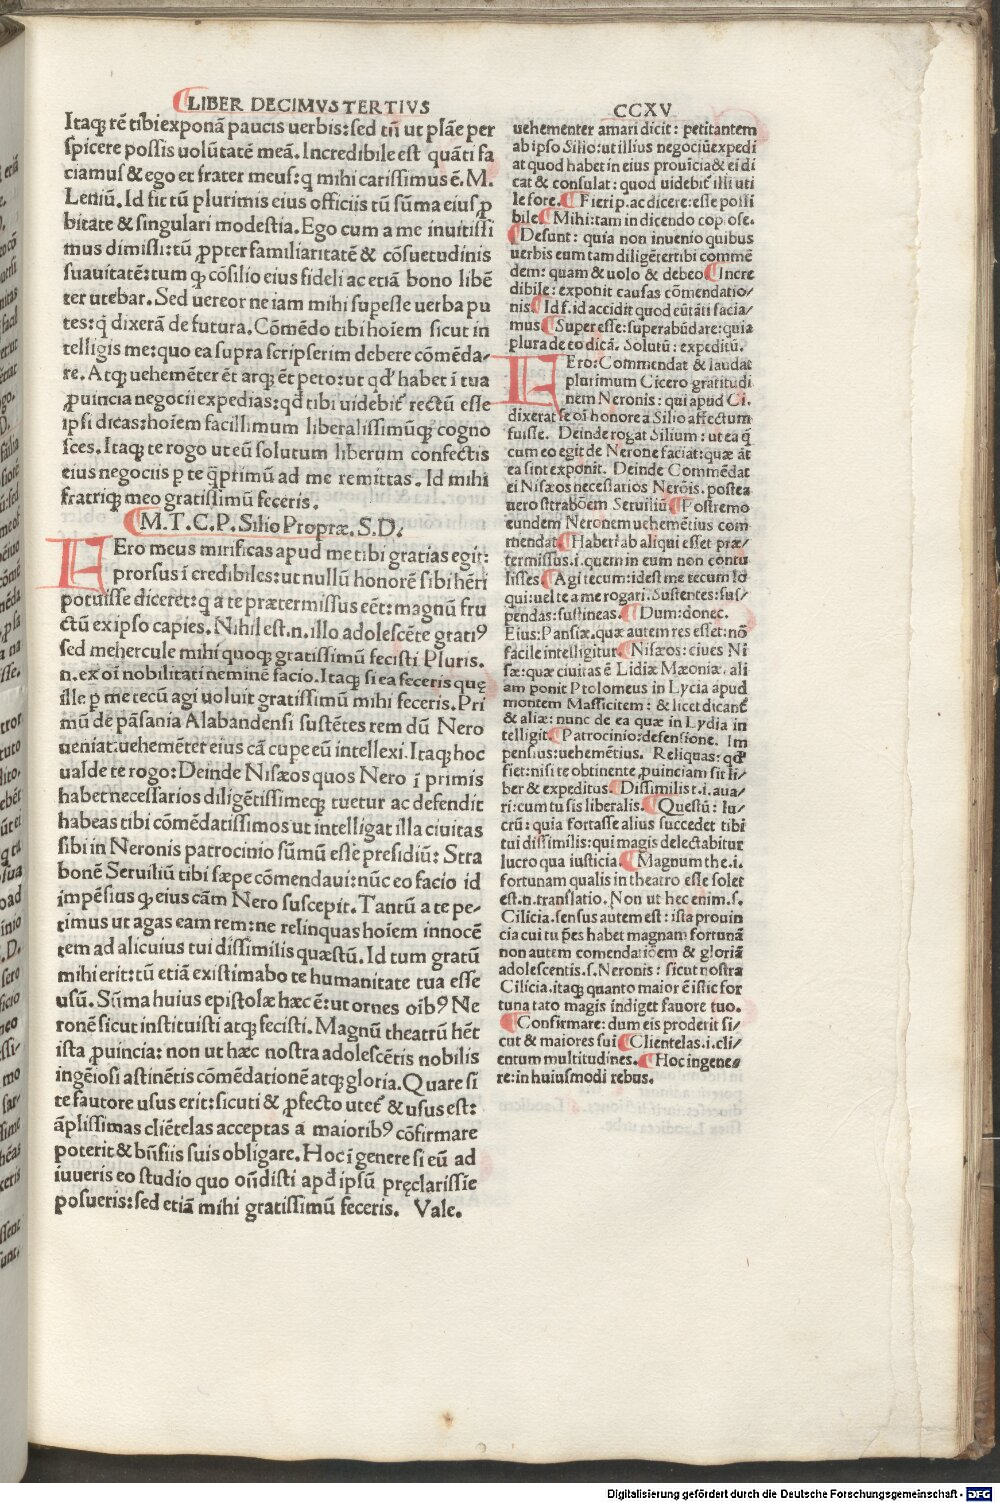 LIBER DECIMVS TERTIVS
CCXV
Itaqꝫ rē tibi exponā paucis uerbis: sed tñ ut plāe per
spicere possis uolūtatē meā. Incredibile est quāti fa
ciamus & ego et frater meus: q̄ mihi carissimus ē. M.
Leniū. Id fit tū plurimis eius officiis tū sūma eius ꝓ
bitate & singulari modestia. Ego cum a me inuitissi
mus dimisi: tū ꝓpter familiaritatē & cōsuetudinis
suauitatē: tum ꝙ cōsilio eius fideli ac etiā bono libē
ter utebar. Sed uereor ne iam mihi supesse uerba pu
tes: q̄ dixerā de futura. Cōmēdo tibi hoiem sicut in
telligis me: quo ea supra scripserim debere cōmēda/
re. Atqꝫ uehemēter ēt atqꝫ ēt peto: ut qđ habet ī tua
ꝓuincia negocii expedias: qđ tibi uidebit̄ rectū esse
ipsi dicas: hoiem facillimum liberalissimūqꝫ cogno
sces. Itaqꝫ te rogo ut eū solutum liberum confectis
eius negociis p̱ te q̄primū ad me remittas. Id mihi
fratriqꝫ meo gratissimū feceris.
M. T. C. P. Silio Propræ. S. D.
Ero meus mirificas apud me tibi gratias egit:
prorsus ī credibiles: ut nullū honorē sibi hēri
potuisse diceret: q̄ a te prætermissus eēt: magnū fru
ctū ex ipso capies. Nihil est .n. illo adolescēte gratiꝰ
sed mehercule mihi quoqꝫ gratissimū fecisti Pluris.
n. ex oī nobilitati neminē facio. Itaqꝫ si ea feceris quę
ille p̱ me tecū agi uoluit gratissimū mihi feceris. Pri
mū de pāsania Alabandensi sustētes rem dū Nero
ueniat: uehemēter eius cā cupe eū intellexi. Itaqꝫ hoc
ualde te rogo: Deinde Nisæos quos Nero ī primis
habet necessarios diligētissimeqꝫ tuetur ac defendit
habeas tibi cōmēdatissimos ut intelligat illa ciuitas
sibi in Neronis patrocinio sūmū esse presidiū: Stra
bonē Seruiliū tibi sæpe cōmendaui: nūc eo facio id
impēsius ꝙ eius cām Nero suscepit. Tantū a te pe-
timus ut agas eam rem: ne relinquas hoiem innocē
tem ad alicuius tui dissimilis quæstū. Id tum gratū
mihi erit: tū etiā existimabo te humanitate tua esse
usū. Sūma huius epistolæ hæc ē: ut ornes oibꝰ Ne
ronē sicut instituisti atqꝫ fecisti. Magnū theatrū hēt
ista ꝓuincia: non ut hæc nostra adolescētis nobilis
ingēiosi astinētis cōmēdationē atqꝫ gloria. Quare si
te fautore usus erit: sicuti & ꝓfecto utet̄ & usus est:
āplissimas cliētelas acceptas a maioribꝰ cōfirmare
poterit & bñfiis suis obligare. Hoc ī genere si eū ad
iuueris eo studio quo oñdisti apđ ipsū pręclarissie
posueris: sed etiā mihi gratissimū feceris. Vale.
uehementer amari dicit: petitantem
ab ipso Silio: ut illius negociū expedi
at quod habet in eius prouīcia & ei di
cat & consulat: quod uidebit̄ illi uti
le fore. Fieri p. ac dicere: esse possi
bile. Mihi: tam in dicendo copiose.
Desunt: quia non inuenio quibus
uerbis eum tam diligēter tibi commē
dem: quam & uolo & debeo Incre
dibile: exponit causas cōmendatio/
nis. Id f. id accidit quod eū tāti facia/
mus. Super esse: superabūdare: quia
plura de eo dicā. Solutū: expeditū.
Ero: Commendat & laudat
plurimum Cicero gratitudi
nem Neronis: qui apud Ci.
dixerat se oī honore a Silio affectum
fuisse. Deinde rogat Silium: ut ea q̄
cum eo egit de Nerone faciat: quæ āt
ea sint exponit. Deinde Commēdat
ei Nisæos necessarios Nerōis. postea
uero strabōem Seruiliū Postremo
eundem Neronem uehemētius com
mendat Haberi ab aliqui esset præ/
termissus .i. quem in eum non contu
lisses Agi tecum: idest me tecum Id
qui: uel te a me rogari. Sustentes: sus/
pendas: sustineas. Dum: donec.
Eius: Pansiæ. quæ autem res esset: nō
facile intelligitur Nisæos: ciues Ni
sæ: quæ ciuitas ē Lidiæ Mæoniæ. ali
am ponit Ptolomeus in Lycia apud
montem Massicitem: & licet dicant̄
& aliæ: nunc de ea quæ in Lydia in
telligit Patrocinio: defensione. Im
pensius: uehemētius. Reliquas: qđ
fiet: nisi te obtinente ꝓuinciam sit li/
ber & expeditus. Dissimilis t .i. aua/
ri: cum tu sis liberalis. Questū: lu/
crū: quia fortasse alius succedet tibi
tui dissimilis: qui magis delectabitur
lucro qua iusticia. Magnum the .i.
fortunam qualis in theatro esse solet
est .n. translatio. Non ut hec enim .s.
Cilicia. sensus autem est: ista prouin
cia cui tu p̄es habet magnam fortunā
non autem comendatiōem & gloriā
adolescentis .s. Neronis: sicut nostra
Cilicia. itaqꝫ quanto maior ē istic for
tuna tato magis indiget fauore tuo.
Confirmare: dum eis proderit si/
cut & maiores sui Clientelas .i. cli/
entum multitudines. Hoc in gene/
re: in huiusmodi rebus.
Digitalisierung gefördert durch die Deutsche Forschungsgemeinschaft - DFG